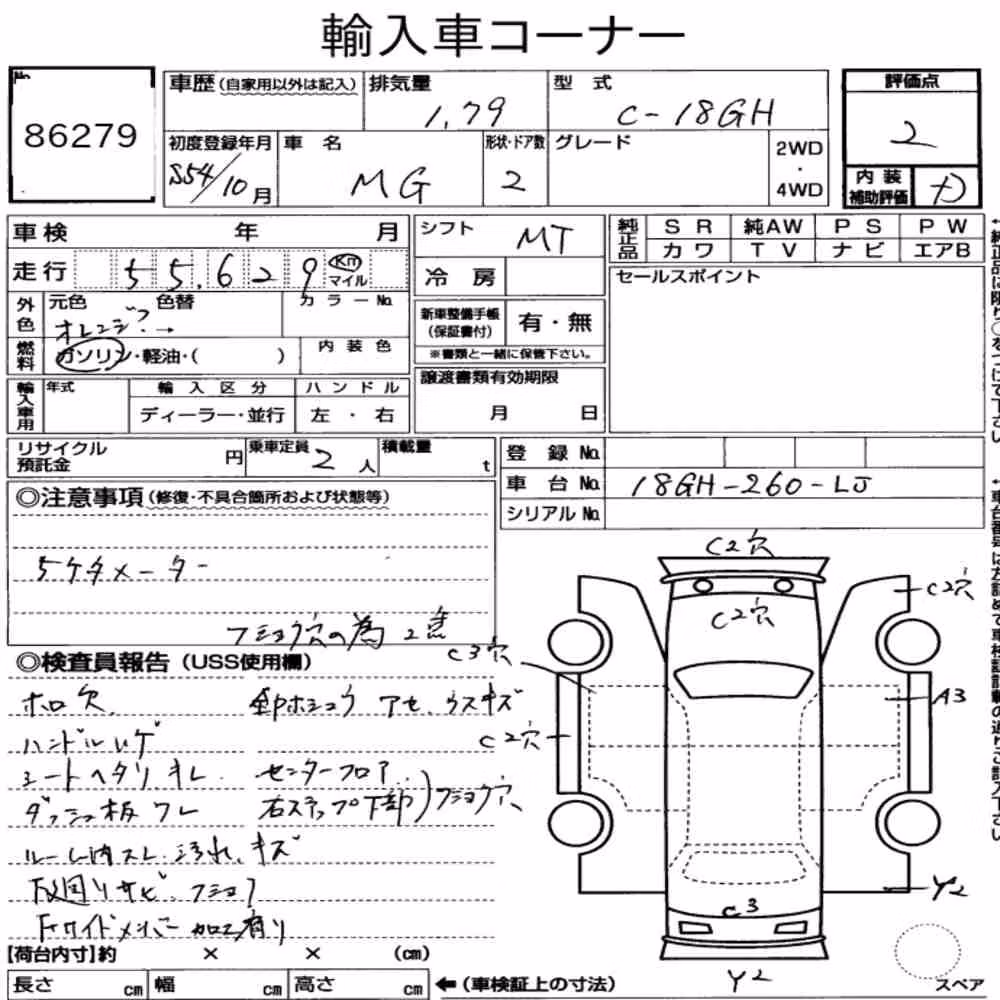 輸入車コーナー
No.
86279
車歴(自家用以外は記入)
排気量
1.79
型式
C-18GH
評価点
2
初度登録年月
S54/10月
車名
MG
形状・ドア数
2
グレード
2WD
・
4WD
内装
補助評価
D
車検 年 月
走行 55,629 Km マイル
外色
元色
オレンジ?→
色替
カラーNo.
燃料
ガソリン・軽油・( )
内装色
輸入車用
年式
輸入区分
ディーラー・並行
ハンドル
左・右
シフト
MT
冷房
新車整備手帳
(保証書付)
有・無
※書類と一緒に保管下さい。
譲渡書類有効期限
月 日
純正品
SR 純AW PS PW
カワ TV ナビ エアB
セールスポイント
リサイクル
預託金
円
乗車定員
2人
積載量
t
登録No.
車台No.
18GH-260-LJ
シリアルNo.
◎注意事項(修復・不具合箇所および状態等)
5ケタメーター
フショク穴の為 2点
◎検査員報告(USS使用欄)
ホロ欠
ハンドルハゲ
シートヘタリ キレ
ダッシュ板ワレ
ルーム内スレ 汚れ、キズ
下廻りサビ、フショク
鈑ホシュウ アセ、ウスキズ
センターフロア
右ステップ下部)フショク穴
加工有り
C2穴
C2穴
C2穴
C3穴
C2穴
A3
C3
Y2
Y2
スペア
[荷台内寸]約 × × (cm)
長さ cm
幅 cm
高さ cm
←(車検証上の寸法)